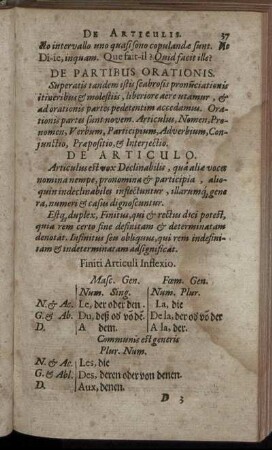 DE ARTICULIS. 37
No intervallo uno quasi sono copulandæ sunt. No
Di-ie, inquam. Que fait-il? Quid facit ille?
DE PARTIBUS ORATIONIS.
Superatis tandem istis scabrosis pronūciationis
itineribus & molestiis, liberiore aere utamur, &
ad orationis partes pedetentim accedamus. Ora-
tionis partes sunt novem. Articulus, Nomen, Pro-
nomen, Verbum, Participium, Adverbium, Con-
junctio, Præpositio, & Interjectio.
DE ARTICULO.
Articulus est vox Declinabilis, quâ alia voces
nomina nempe, pronomina & participia, alio-
quin indeclinabiles inflectuntur, illarumq́; gene
ra, numeri & casus dignoscuntur.
Estq́; duplex, Finitus, qui & rectius dici potest,
quia rem certo sine definitam & determinatam
denotat. Infinitus seu obliquus, qui rem indefini-
tam & indeterminatam adsignificat.
Finiti Articuli Inflexio.
Masc. Gen. Fœm. Gen.
Num. Sing. Num. Plur.
N. & Ac. Le, der oder den. La, die
G. & Ab. Du, deß oͤs võ dē. De la, der oͤs võ der
D. A dem. A la, der.
Communis est generis
Plur. Num.
N. & Ac. Les, die
G. & Abl. Des, deren oder von denen.
D. Aux, denen.
D 3